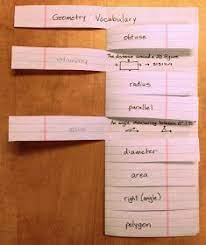 Geometry Vocabulary
obtuse
The distance around a 2D figure.
radius
parallel
An angle measuring between 0° +
diameter
area
right (angle)
polygon